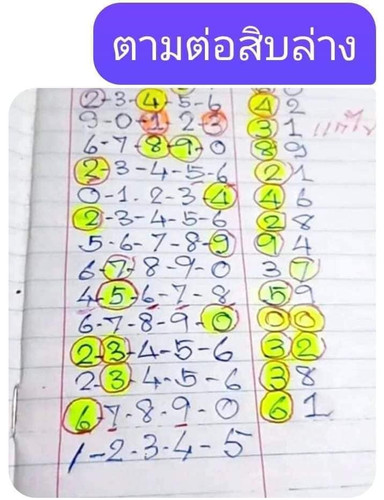 ตามต่อสิบล่าง
2-3-4-5-6 42
9-0-1-2-3 31
6-7-8-9-0 89
2-3-4-5-6 21
0-1-2-3-4 46
2-3-4-5-6 28
5-6-7-8-9 94
6-7-8-9-0 37
4-5-6-7-8 59
6-7-8-9-0 00
2-3-4-5-6 32
2-3-4-5-6 38
6-7-8-9-0 61
1-2-3-4-5